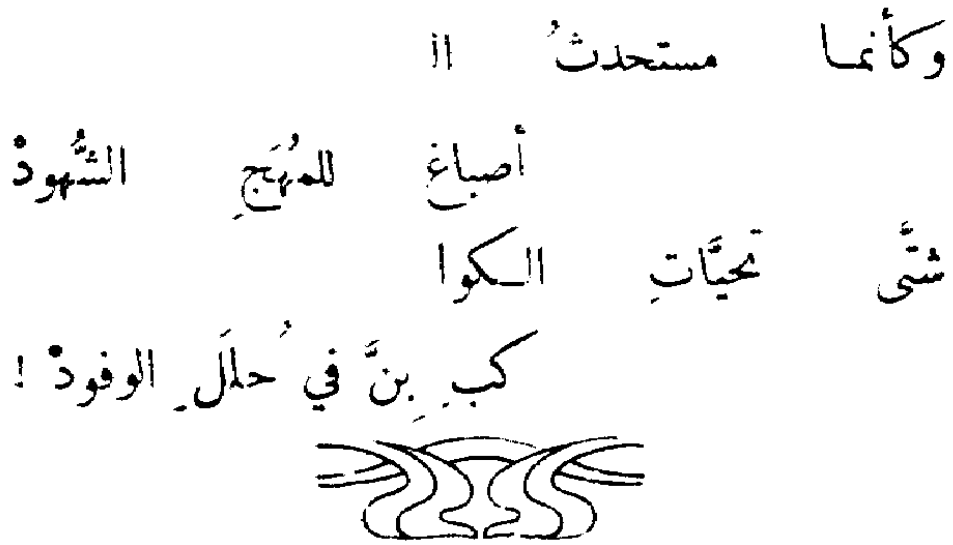 وكأنما مستحدثُ ال
أصباغ للمُهَجِ الشُّهودْ
شتَّى تحيَّاتِ الكوا
كبِ بِنَّ في حُلَلِ الوفودْ !